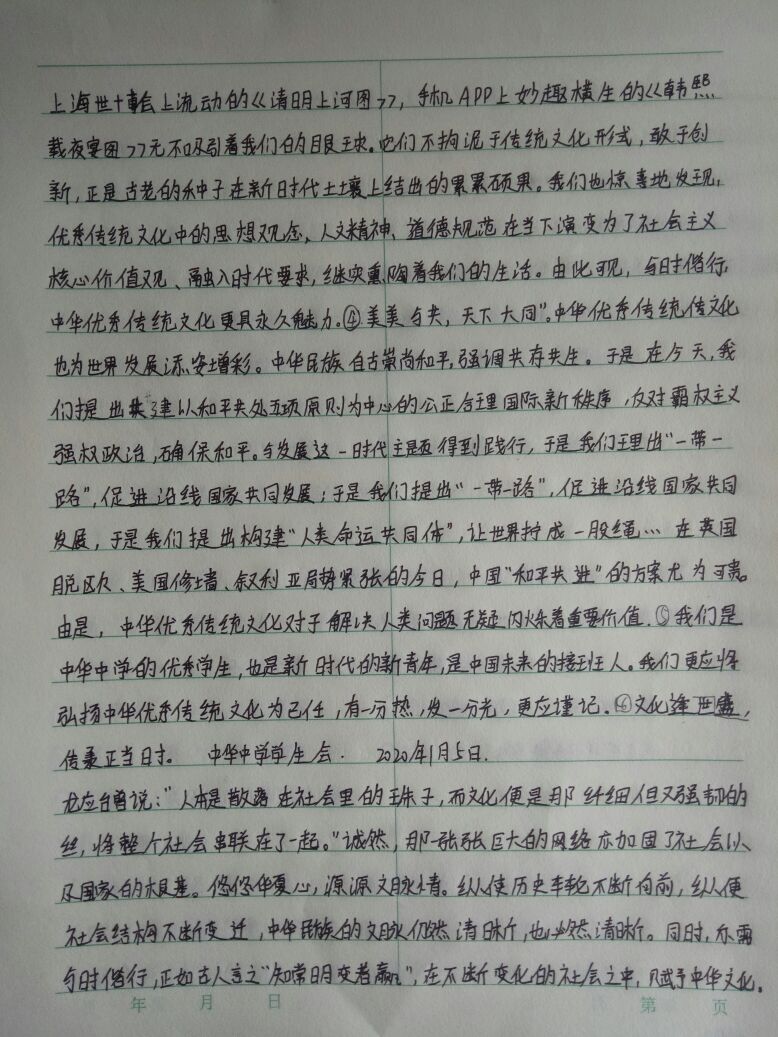 上海世博会上流动的《清明上河图》，手机APP上妙趣横生的《韩熙
载夜宴图》无不吸引着我们的眼球。它们不拘泥于传统文化形式，敢于创
新，正是古老的种子在新时代土壤上结出的累累硕果。我们也惊喜地发现，
优秀传统文化中的思想观念，人文精神、道德规范在当下演变为了社会主义
核心价值观、融入时代要求，继续熏陶着我们的生活。由此可见，与时偕行，
中华优秀传统文化更具永久魅力。④美美与共，天下大同”。中华优秀传统传文化
也为世界发展添姿增彩。中华民族自古崇尚和平，强调共存共生。于是在今天，我
们提出建以和平共处五项原则为中心的公正合理国际新秩序，反对霸权主义
强权政治，确保和平。与发展这一时代主题得到践行，于是我们提出“一带一
路”，促进沿线国家共同发展；于是我们提出“一带一路”，促进沿线国家共同
发展，于是我们提出构建“人类命运共同体”，让世界拧成一股绳…在英国
脱欧、美国修墙、叙利亚局势紧张的今日，中国“和平共进”的方案尤为可贵。
由是，中华优秀传统文化对于解决人类问题无疑闪烁着重要价值。⑤我们是
中华中学的优秀学生，也是新时代的新青年，是中国未来的接班人。我们更应将
弘扬中华优秀传统文化为己任，有一分热，发一分光，更应谨记。⑥文化逢世盛，
传承正当时。 中华中学学生会． 2020年1月5日．
龙应台曾说：“人本是散落在社会里的珠子，而文化便是那纤细但又强韧的
丝，将整个社会串联在了一起。”诚然，那一张张巨大的网络亦加固了社会以
及国家的根基。悠悠华夏心，源源文脉情。纵使历史车轮不断向前，纵使
社会结构不断变迁，中华民族的文脉仍然清晰，也必然清晰。同时，亦需
与时偕行，正如古人言之“知常明变者赢”，在不断变化的社会之中，赋予中华文化．
年 月 日 第 页